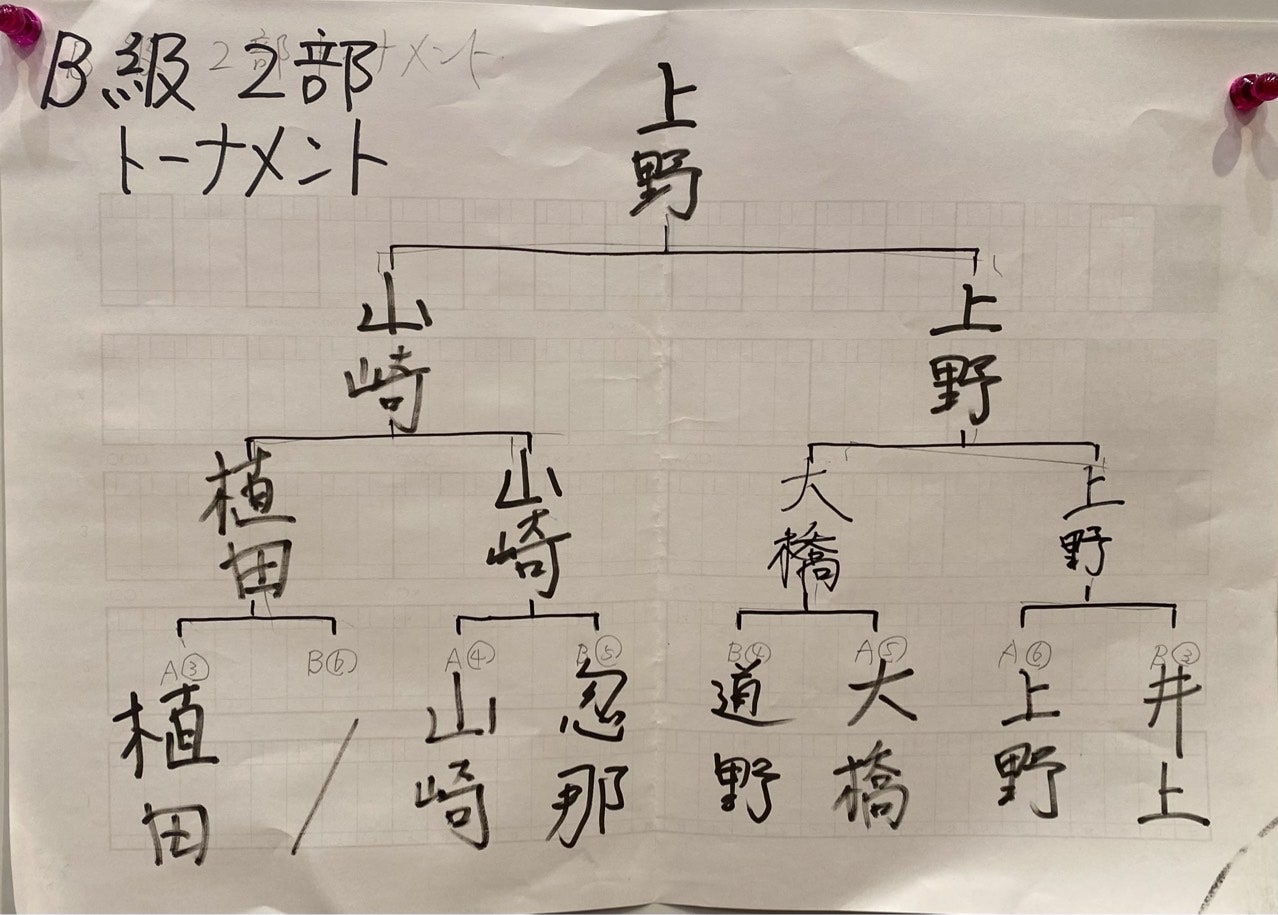 B級 2部
トーナメント
上野
山崎
上野
植田
山崎
大橋
上野
A③
B⑥
A④
B⑤
B④
A⑤
A⑥
B③
植田
山崎
忽那
道野
大橋
上野
井上